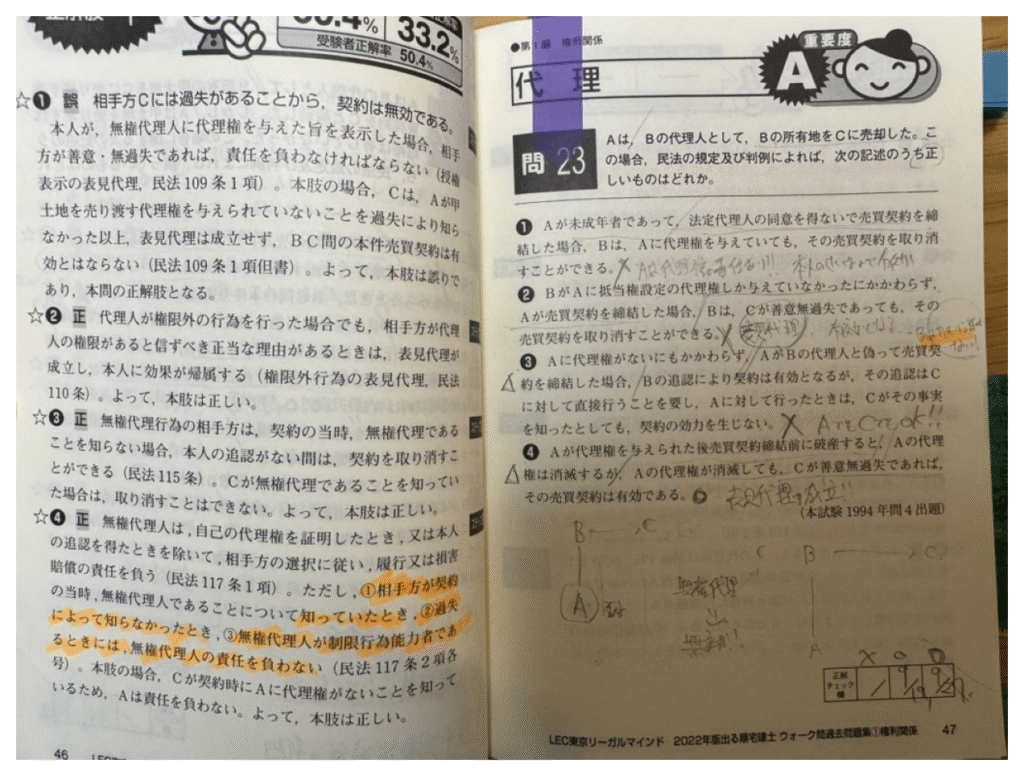 正解肢
33.2%
受験者正解率 50.4%
☆❶ 誤 相手方Cには過失があることから，契約は無効である。
本人が，無権代理人に代理権を与えた旨を表示した場合，相手
方が善意・無過失であれば，責任を負わなければならない（授権
表示の表見代理，民法109条1項）。本肢の場合，Cは，Aが甲
土地を売り渡す代理権を与えられていないことを過失により知ら
なかった以上，表見代理は成立せず，BC間の本件売買契約は有
効とはならない（民法109条1項但書）。よって，本肢は誤りで
あり，本問の正解肢となる。
☆❷ 正 代理人が権限外の行為を行った場合でも，相手方が代理
人の権限があると信ずべき正当な理由があるときは，表見代理が
成立し，本人に効果が帰属する（権限外行為の表見代理，民法
110条）。よって，本肢は正しい。
☆❸ 正 無権代理行為の相手方は，契約の当時，無権代理である
ことを知らない場合，本人の追認がない間は，契約を取り消すこ
とができる（民法115条）。Cが無権代理であることを知ってい
た場合は，取り消すことはできない。よって，本肢は正しい。
☆❹ 正 無権代理人は，自己の代理権を証明したとき，又は本人
の追認を得たときを除いて，相手方の選択に従い，履行又は損害
賠償の責任を負う（民法117条1項）。ただし，①相手方が契約
の当時，無権代理人であることについて知っていたとき，②過失
によって知らなかったとき，③無権代理人が制限行為能力者であ
るときには，無権代理人の責任を負わない（民法117条2項各
号）。本肢の場合，Cが契約時にAに代理権がないことを知って
いるため，Aは責任を負わない。よって，本肢は正しい。
46
●第1編 権利関係
代理
重要度
A
問23
Aは，Bの代理人として，Bの所有地をCに売却した。こ
の場合，民法の規定及び判例によれば，次の記述のうち正
しいものはどれか。
❶ Aが未成年者であって，法定代理人の同意を得ないで売買契約を締
結した場合，Bは，Aに代理権を与えていても，その売買契約を取り消
すことができる。×
❷ BがAに抵当権設定の代理権しか与えていなかったにかかわらず，
Aが売買契約を締結した場合，Bは，Cが善意無過失であっても，その
売買契約を取り消すことができる。× 表見代理
❸ Aに代理権がないにもかかわらず，AがBの代理人と偽って売買契
△約を締結した場合，Bの追認により契約は有効となるが，その追認はC
に対して直接行うことを要し，Aに対して行ったときは，Cがその事実
を知ったとしても，契約の効力を生じない。× AでもCでもok!!
❹ Aが代理権を与えられた後売買契約締結前に破産すると，Aの代理
△権は消滅するが，Aの代理権が消滅しても，Cが善意無過失であれば，
その売買契約は有効である。○ 表見代理が成立!!
（本試験1994年問4出題）
B C
A
無権代理
B C
A
× ○ ○
正解チェック欄
LEC東京リーガルマインド 2022年版出る順宅建士 ウォーク問過去問題集①権利関係 47